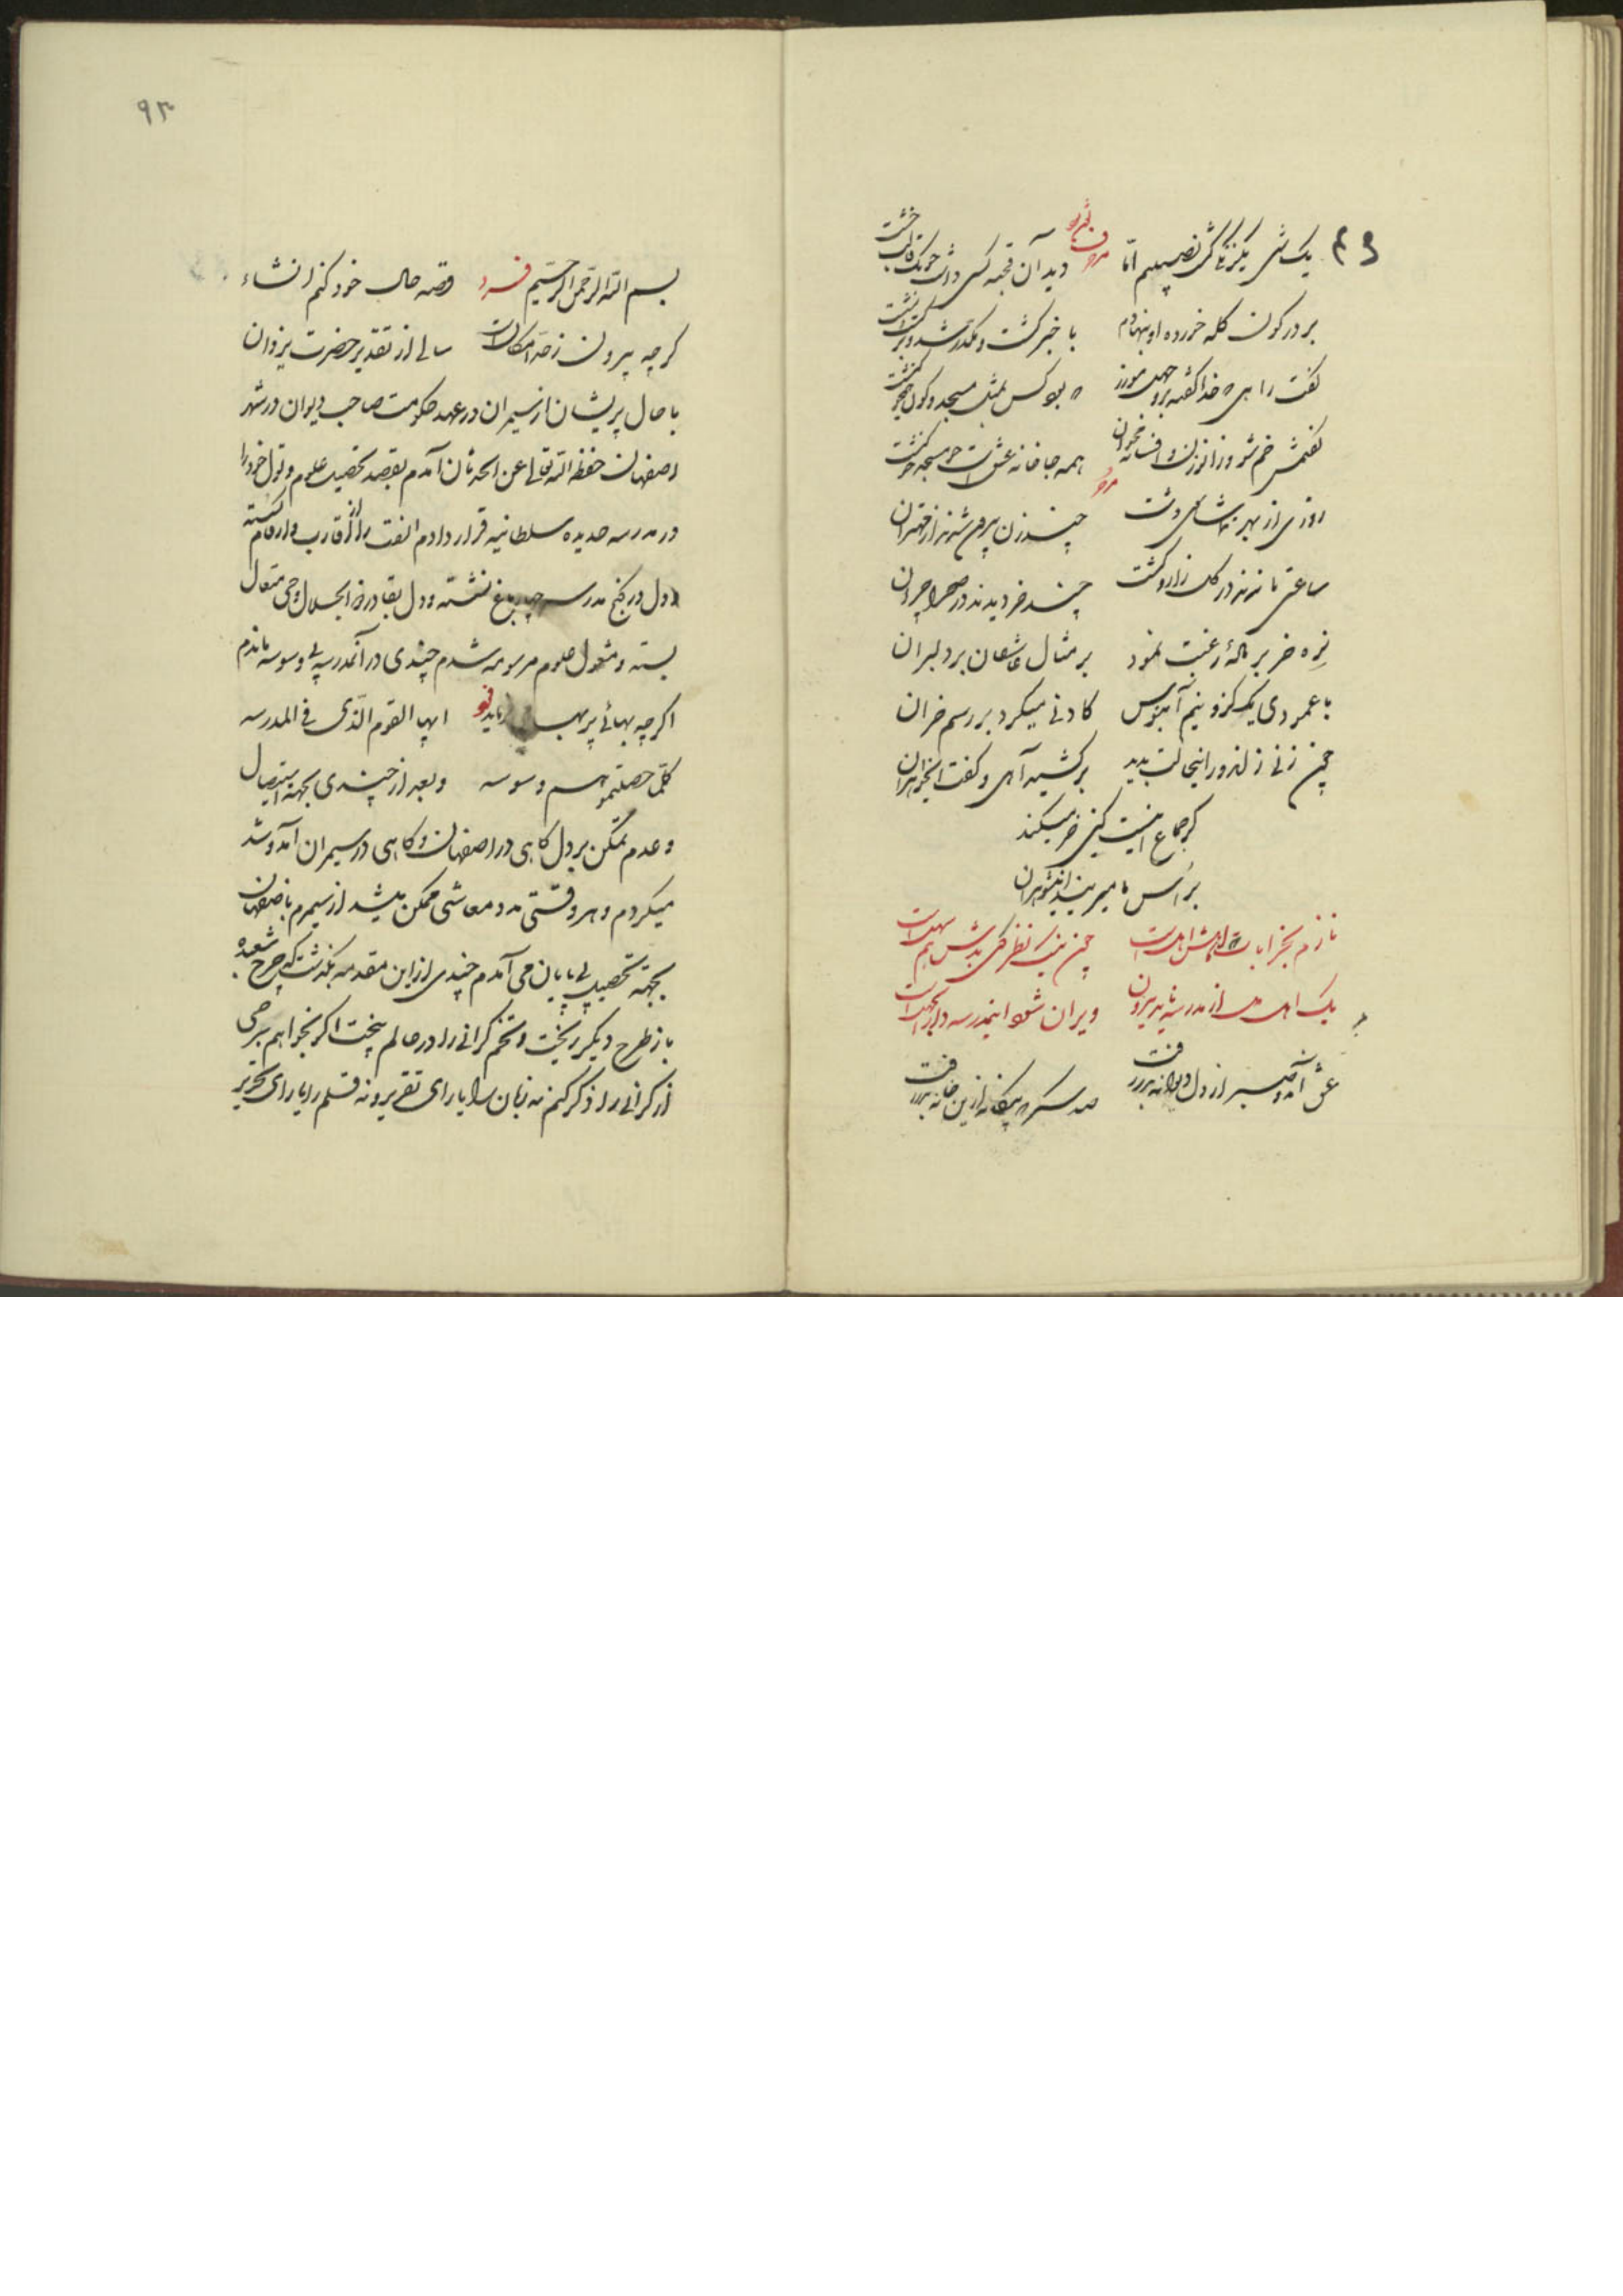 یک شبی یکزنکی کش نصیبم امّا دید آن قحبه کسی داشت چو یک قالب خشت
بر در کون کله خورده او بنهادم با خبر گشت و مکدر شد و
گفت راهی که خدا گفته برو بود کس مثل مسجد و کون همچو کنشت
گفتمش خم شو و زانو زن و افسانه مخوان همه جا خانه عشق است چه مسجد چه کنشت
روزی از بهر تماشای دشت چند زن بیرون شدند از مهتران
ساعتی تا نزند در کل زار و گشت چند خر دیدند در صحرا چران
نره خر بر ماده رغبت نمود بر مثال عاشقان بر دلبران
با عمودی یک گز و نیم آبنوس کادنی میکرد بر رسم خران
چون زنی زاندور اینحالت بدید بر کشید آهی و گفت ایخواهران
گر جماع اینست کین خر میکند
بر کس ما میریند اینشوهران
نازم بخرابات که اهلش اهل است چون نیک نظر کنی بدش هم سهل است
یک اهل دل از مدرسه نامد بیرون ویران شود اینمدرسه دار الجهل است
عشق آمد و صبر از دل دیوانه بدر رفت صد شکر که بیگانه ازین خانه بدر رفت
۹۳
بسم الله الرحمن الرحیم فرد وقصه حال خود کنم انشاء
کرچه بیرون ز حد امکان است سالی از تقدیر حضرت یزدان
با حال پریشان از سمیران در عهد حکومت صاحب دیوان در شهر
اصفهان حفظه الله تعالی عن الحدثان آمدم بقصد تحصیل علوم و نزول خود را
در مدرسه جدیده سلطانیه قرار دادم الفت را از اقارب و ارقام گسسته
و دل در کنج مدرسه چهار باغ نشسته و دل بقادر ذو الجلال و حی متعال
بسته و مشغول علوم مرسومه شدم چندی در آنمدرسه بی وسوسه ماندم
اگرچه بهائی پر بها فرماید ایها القوم الذی فی المدرسه
کلما حصلتموه وسوسه وبعد از چندی بجهة استیصال
و عدم تمکن بر دل گاهی در اصفهان و گاهی در سمیران آمد و شد
میکردم و هر وقتی مدد معاشی ممکن میشد از سمیرم باصفهان
بجهة تحصیل بی پایان می آمدم چندی از این مقدمه بگذشت که چرخ شعبده
باز طرح دیگر ریخت و تخم گرانی را در عالم بیخت اگر بخواهم برخی
از گرانی را ذکر کنم نه زبان را یارای تقریر و نه قلم را یارای تحریر